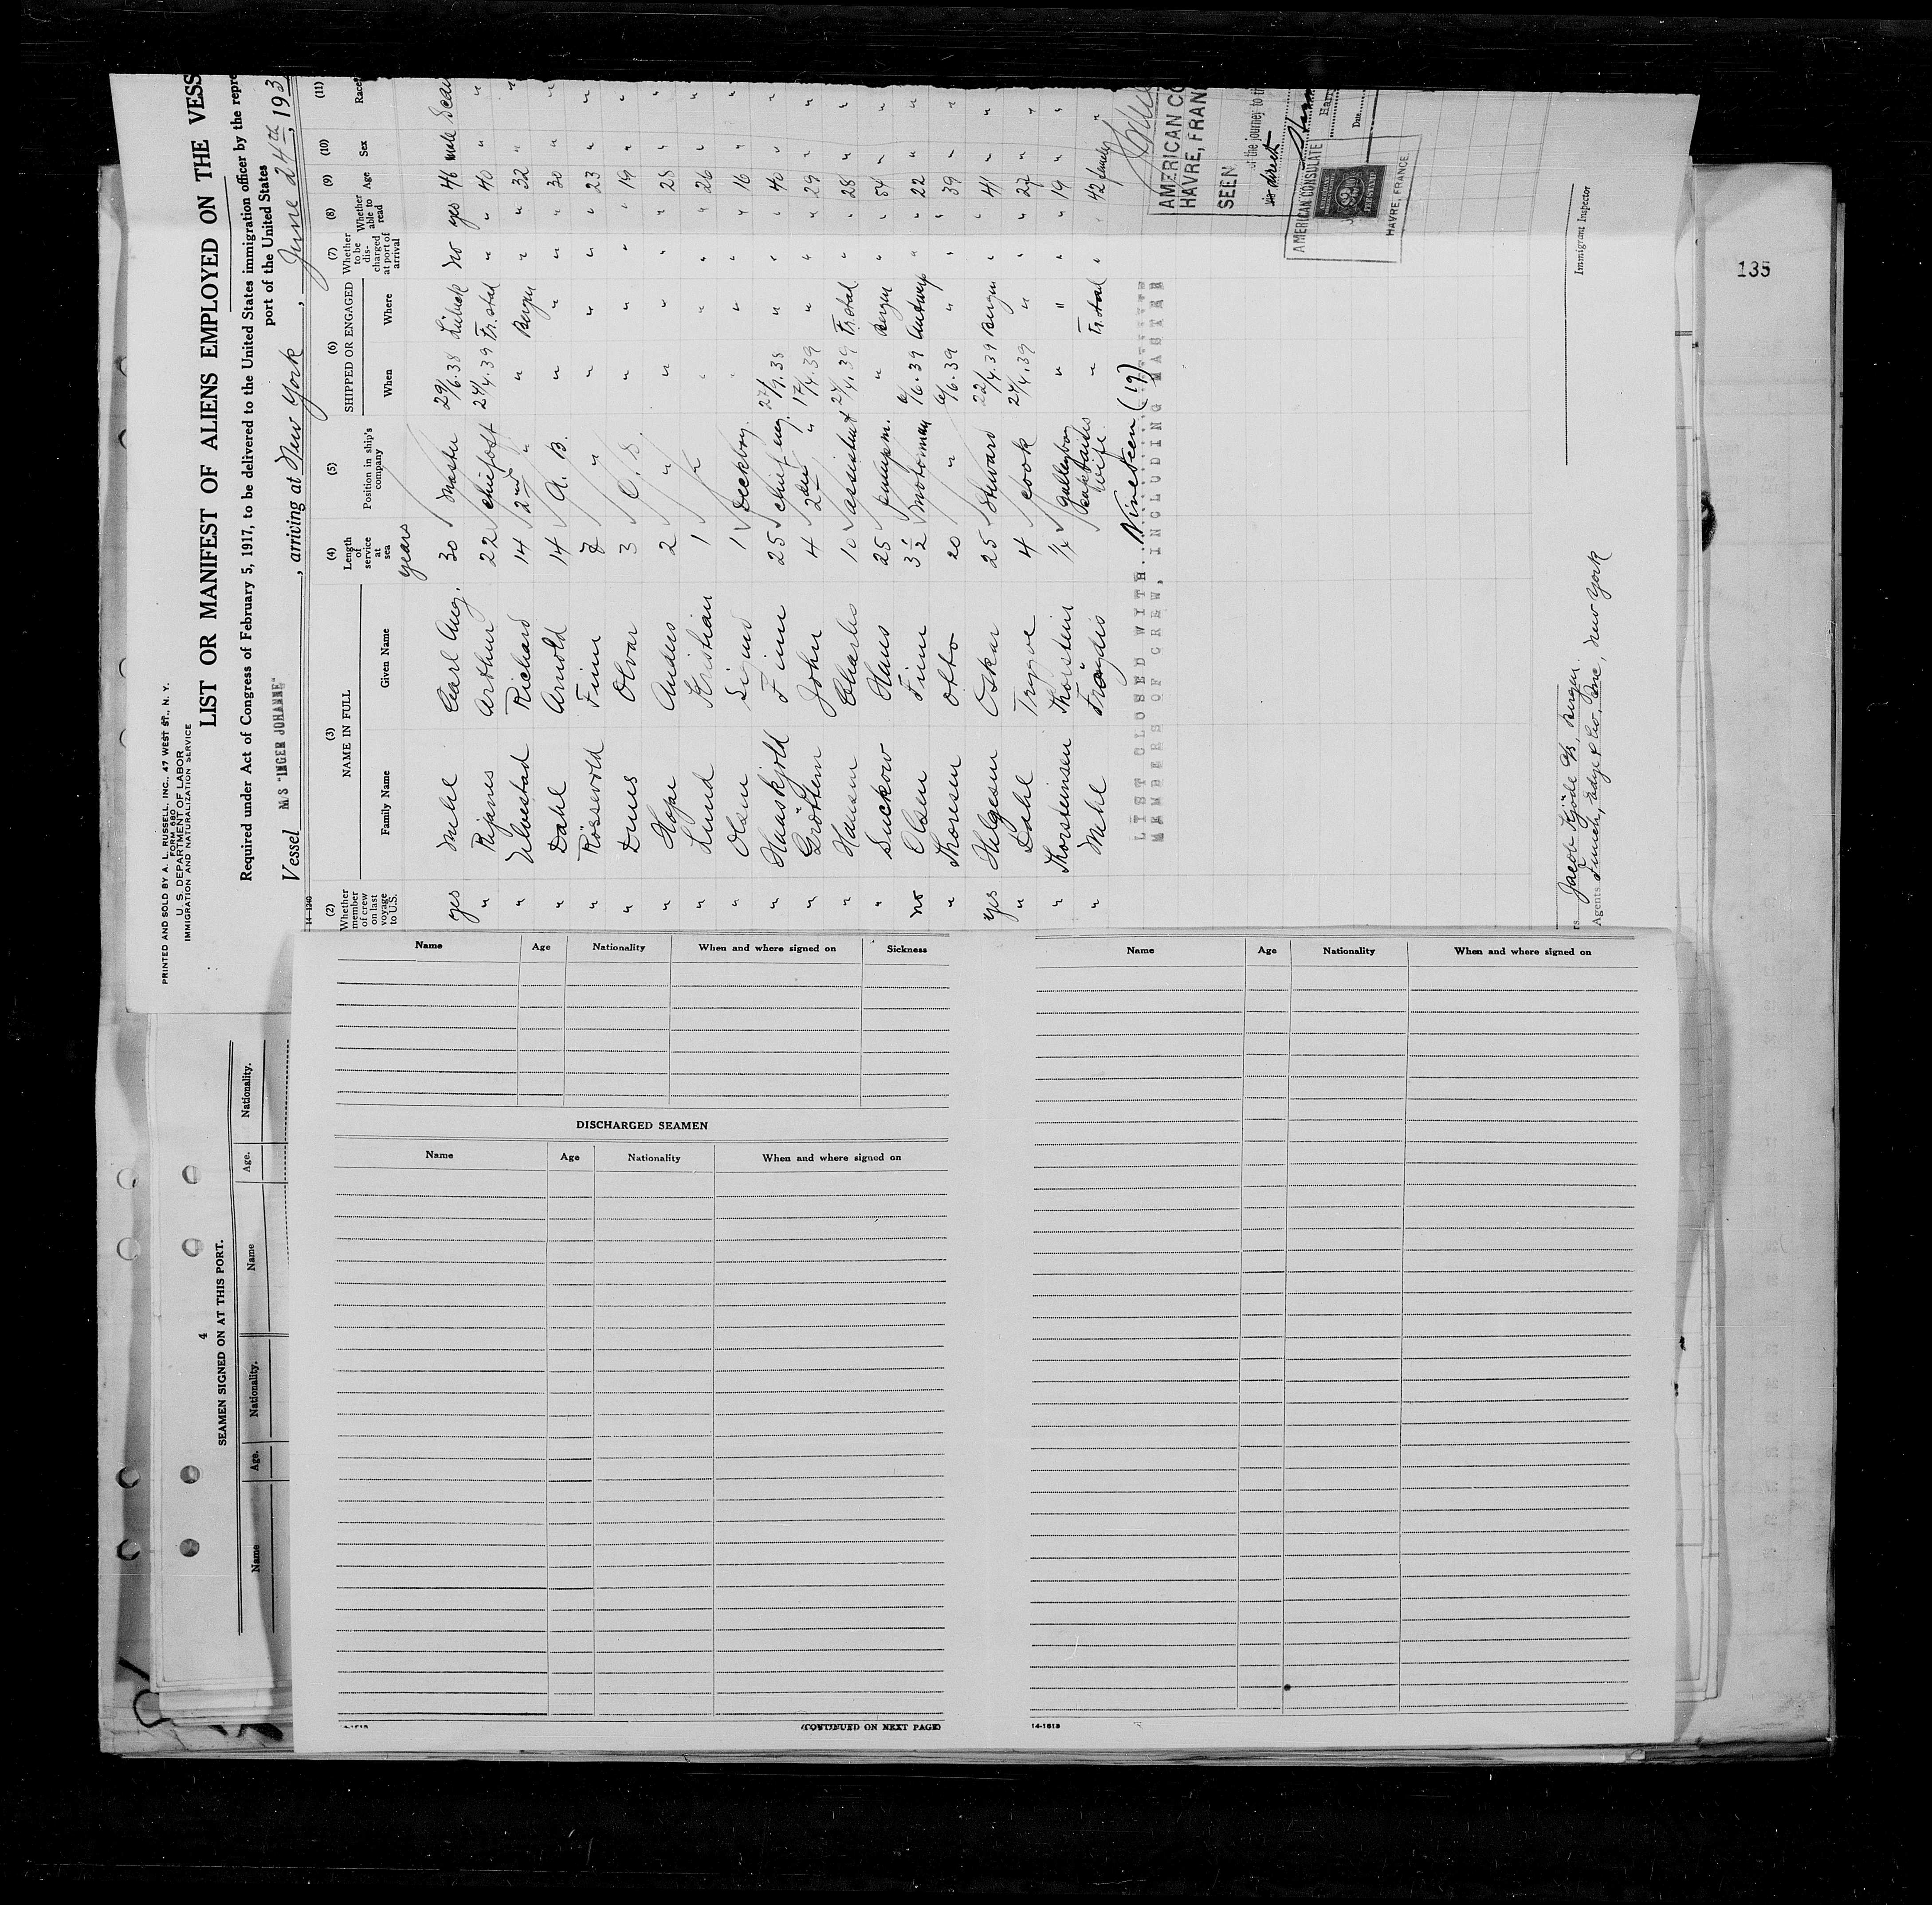 PRINTED AND SOLD BY A. L. RUSSELL, INC., 47 WEST ST., N. Y.
FORM 680
U. S. DEPARTMENT OF LABOR
IMMIGRATION AND NATURALIZATION SERVICE
LIST OR MANIFEST OF ALIENS EMPLOYED ON THE VESS
Required under Act of Congress of February 5, 1917, to be delivered to the United States immigration officer by the repre
port of the United States
Vessel MS "INGER JOHANNE", arriving at New York, June 24th, 193
14-1240
(2) Whether member of crew on last voyage to U.S.
(3) NAME IN FULL
Family Name Given Name
(4) Length of service at sea
(5) Position in ship's company
(6) SHIPPED OR ENGAGED
When Where
(7) Whether to be discharged at port of arrival
(8) Whether able to read
(9) Age
(10) Sex
(11) Race
years
yes Mehl Carl Aug. 30 Master 29/6.38 Lübeck No yes 46 male Scan
" Rijanes Arthur 22 chief ost 24/4.39 Fr.stad " " 40 " "
" Ulvestad Richard 14 2nd " " Bergen " " 32 " "
" Dahl Arnold 14 A. B. " " " " 30 " "
" Rössevold Finn 7 " " " " " 23 " "
" Duus Olvar 3 O. S. " " " " 19 " "
" Hope Anders 2 " " " " 28 " "
" Lund Kristian 1 " " " " " 26 " "
" Olsen Sigurd 1 Deckboy. " " " 16 " "
" Haaskjold Finn 25 chief eng. 27/9.38 " " " 40 " "
" Gröttem John 4 2nd " 17/4.39 " " " 29 " "
" Hansen Charles 10 assistent 24/4.39 Fr.stad " " 28 " "
" Suckow Hans 25 pumpm. " Bergen " " 54 " "
no Olsen Finn 3 1/2 Motorman 6/6.39 Antwerp " " 22 " "
" Thoresen Otto 20 " 6/6.39 " " " 39 " "
yes Helgesen Oskar 25 Steward 22/4.39 Bergen " " 41 " "
" Dahl Trygve 4 cook 24/4.39 " " " 27 " "
" Thorsteinsen Thorstein 1/4 Galleyboy " " " " 19 " "
" Mehl Frøydis captains wife. " Fr.stad " " 42 female "
LIST CLOSED WITH Nineteen (19)
MEMBERS OF CREW, INCLUDING MASTER
AMERICAN CO
HAVRE, FRAN
SEEN
of the journey to th
via direct
AMERICAN CONSULATE
HAVRE, FRANCE.
Date
Immigrant Inspector
Jacob Kjöde A/S, Bergen.
Agents. Funch, Edye & Co. Inc, New York
135
4
SEAMEN SIGNED ON AT THIS PORT.
Name Age. Nationality. Name Age. Nationality.
Name Age Nationality When and where signed on Sickness
DISCHARGED SEAMEN
Name Age Nationality When and where signed on
(CONTINUED ON NEXT PAGE)
Name Age Nationality When and where signed on
14-1613